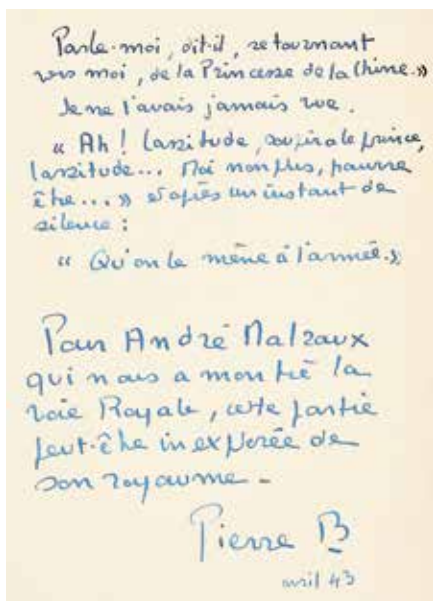 Parle-moi, dit-il, se tournant
vers moi, de la Princesse de la Chine.»
Je ne l'avais jamais vue.
« Ah ! lassitude, soupira le prince,
lassitude... Moi non plus, pauvre
être...» et après un instant de
silence :
« Qu'on le mène à l'armée.»
Pour André Malraux
qui nous a montré la
voie Royale, cette partie
peut-être inexplorée de
son royaume -
Pierre B
avril 43